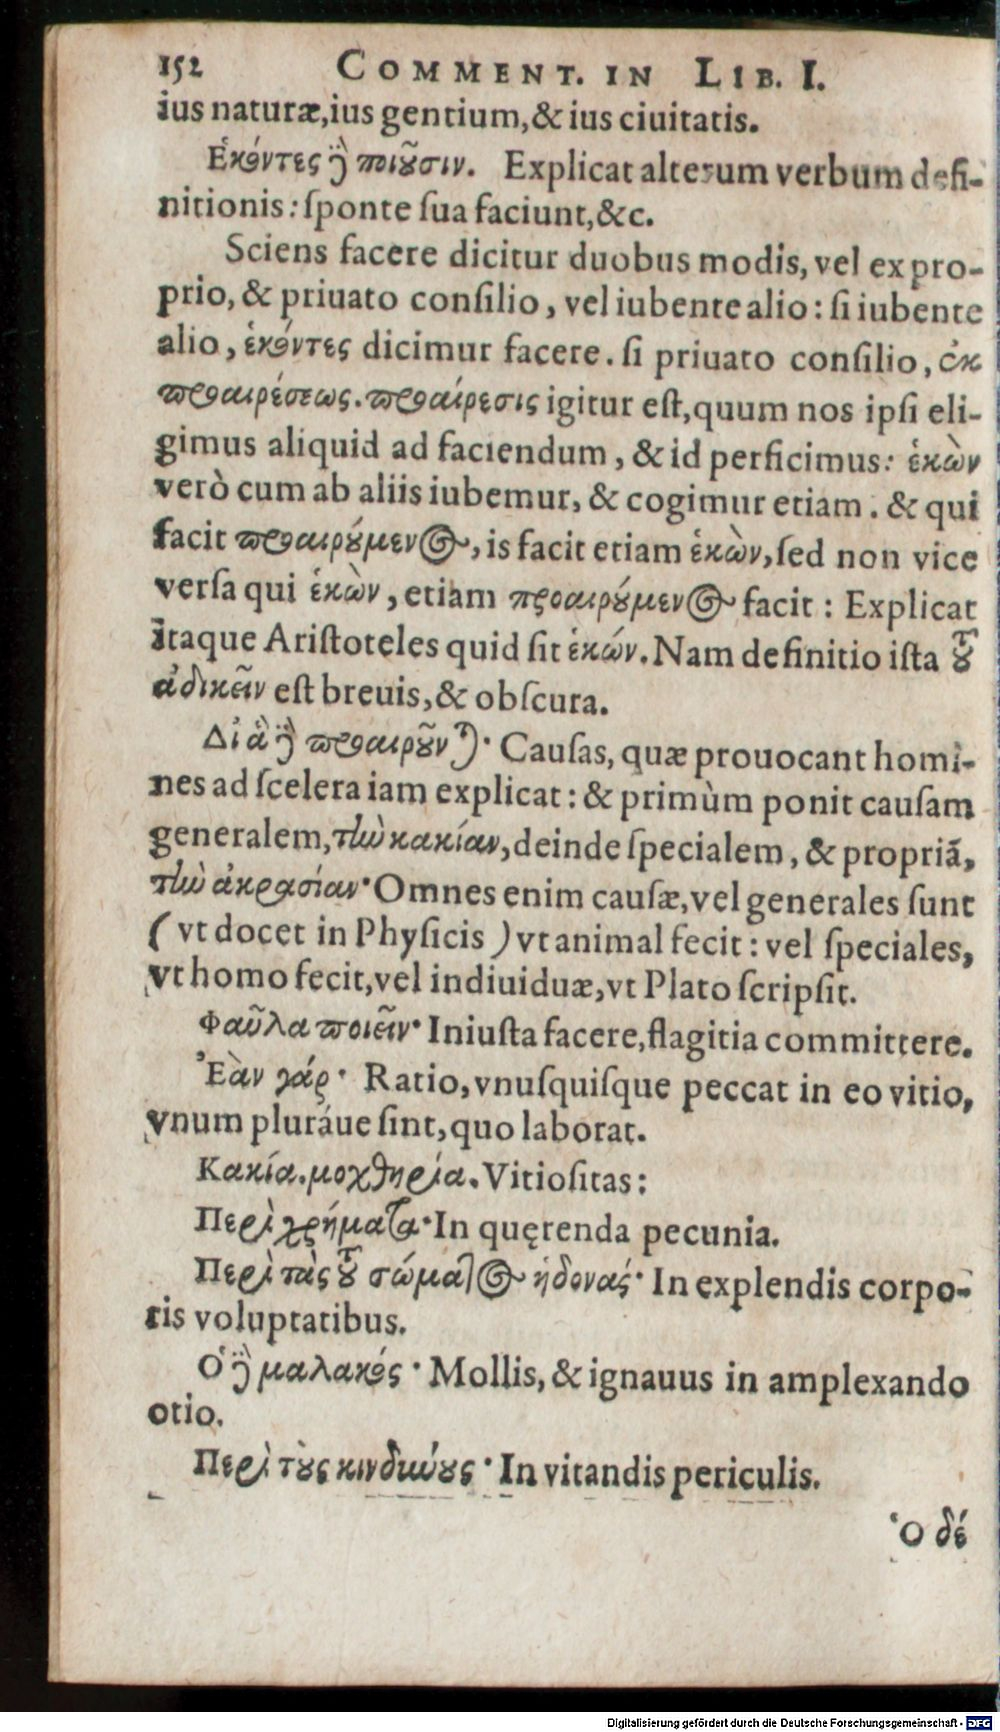 152 COMMENT. IN LIB. I.
ius naturæ,ius gentium,& ius ciuitatis.
Ἑκόντες δὲ ποιοῦσιν. Explicat alterum verbum defi-
nitionis: ſponte ſua faciunt,&c.
Sciens facere dicitur duobus modis, vel ex pro-
prio, & priuato conſilio, vel iubente alio: ſi iubente
alio, ἑκόντες dicimur facere. ſi priuato conſilio, ἐκ
προαιρέσεως. προαίρεσις igitur eſt, quum nos ipſi eli-
gimus aliquid ad faciendum, & id perficimus: ἑκὼν
verò cum ab aliis iubemur, & cogimur etiam. & qui
facit προαιρούμενος, is facit etiam ἑκὼν, ſed non vice
verſa qui ἑκὼν, etiam προαιρούμενος facit: Explicat
itaque Ariſtoteles quid ſit ἑκών. Nam definitio iſta τοῦ
ἀδικεῖν eſt breuis, & obſcura.
Δι' ἃ δὲ προαιροῦνται· Cauſas, quæ prouocant homi-
nes ad ſcelera iam explicat: & primùm ponit cauſam
generalem, τὴν κακίαν, deinde ſpecialem, & propriã,
τὴν ἀκρασίαν· Omnes enim cauſæ, vel generales ſunt
( vt docet in Phyſicis ) vt animal fecit: vel ſpeciales,
vt homo fecit, vel indiuiduæ, vt Plato ſcripſit.
Φαῦλα ποιεῖν· Iniuſta facere, flagitia committere.
Ἐὰν γάρ· Ratio, vnuſquiſque peccat in eo vitio,
vnum pluráue ſint, quo laborat.
Κακία. μοχθηρία. Vitioſitas:
Περὶ χρήματα· In quęrenda pecunia.
Περὶ τὰς τοῦ σώματος ἡδονάς· In explendis corpo-
ris voluptatibus.
Ὁ δὲ μαλακός· Mollis, & ignauus in amplexando
otio.
Περὶ τοὺς κινδύνους· In vitandis periculis.
Ὁ δέ
Digitalisierung gefördert durch die Deutsche Forschungsgemeinschaft - DFG